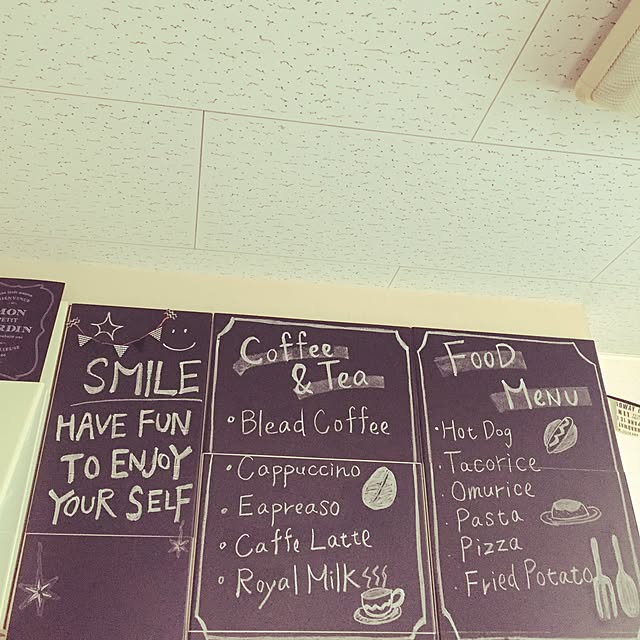 MON
PETIT
SMILE
HAVE FUN
TO ENJOY
YOUR SELF
Coffee
& Tea
Blead Coffee
Cappuccino
Eapreaso
Caffe Latte
Royal Milk
FooD
MENU
Hot Dog
Tacorice
Omurice
Pasta
Pizza
Fried Potato